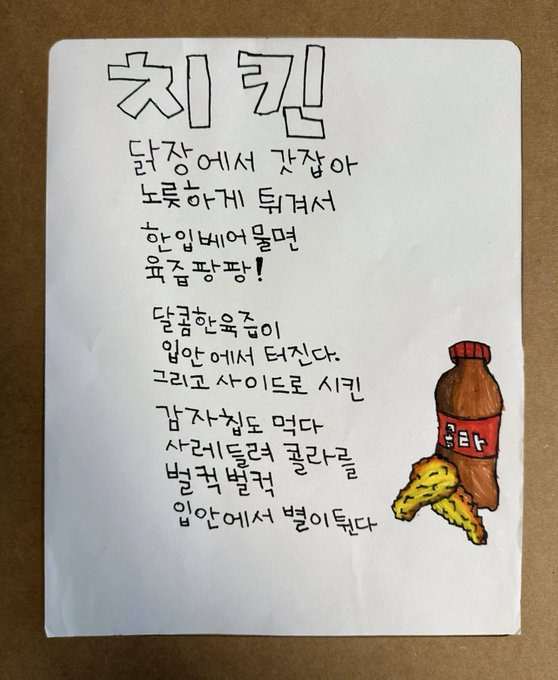 치킨
닭장에서 갓잡아
노릇하게 튀겨서
한입베어물면
육즙팡팡!
달콤한육즙이
입안에서 터진다.
그리고 사이드로 시킨
감자칩도 먹다
사레들려 콜라를
벌컥벌컥
입안에서 별이튄다
콜라